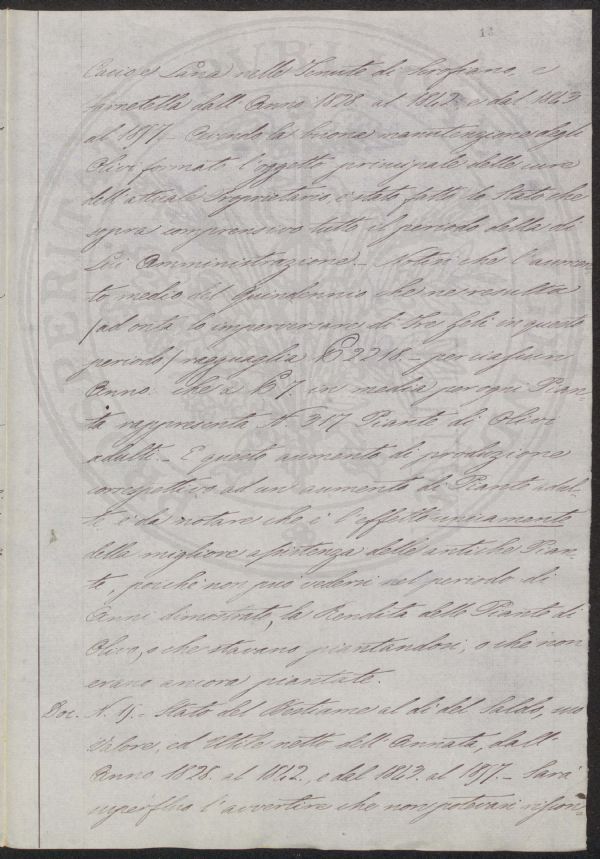 13
Cacio e Lana nelle Tenute di Scrofiano, e
Finetella dall'Anno 1828. al 1842. e dal 1843
al 1857.- Avendo la buona manutenzione degli
Olivi formato l'oggetto principale delle cure
dell'attuale Proprietario è stato fatto lo Stato che
sopra comprensivo tutto il periodo della di
Lui Amministrazione.- Notisi che l'aumen
to medio del Quindennio che ne resulta
/ad onta lo imperversare di tre geli in questo
periodo/ ragguaglia 2218.- per ciascun
Anno. che a 7. in media per ogni Pian=
ta rappresenta N. 317 Piante di Olivi
adulti.- E questo aumento di produzione
correspettivo ad un'aumento di Piante adul=
te è da notare che è l'effetto unicamente
della migliore assistenza delle antiche Pian
te, poichè non può vedersi nel periodo di
Anni dimostrato, la Rendita delle Piante di
Olivo, o che stavano piantandosi, o che non
erano ancora piantate.
Doc. N. 9.- Stato del Bestiame al dì del Saldo, suo
Valore, ed Utile netto dell'Annata, dall'
Anno 1828. al 1842. e dal 1843. al 1857.- Sarà
superfluo l'avvertire che non potevasi